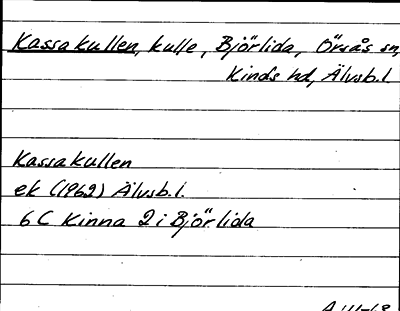 Kassakullen, kulle, Björlida, Örsås sn,
Kinds hd, Älvsb.l
Kassakullen
ek (1962) Älvsb.l.
6 C Kinna 2 i Björlida